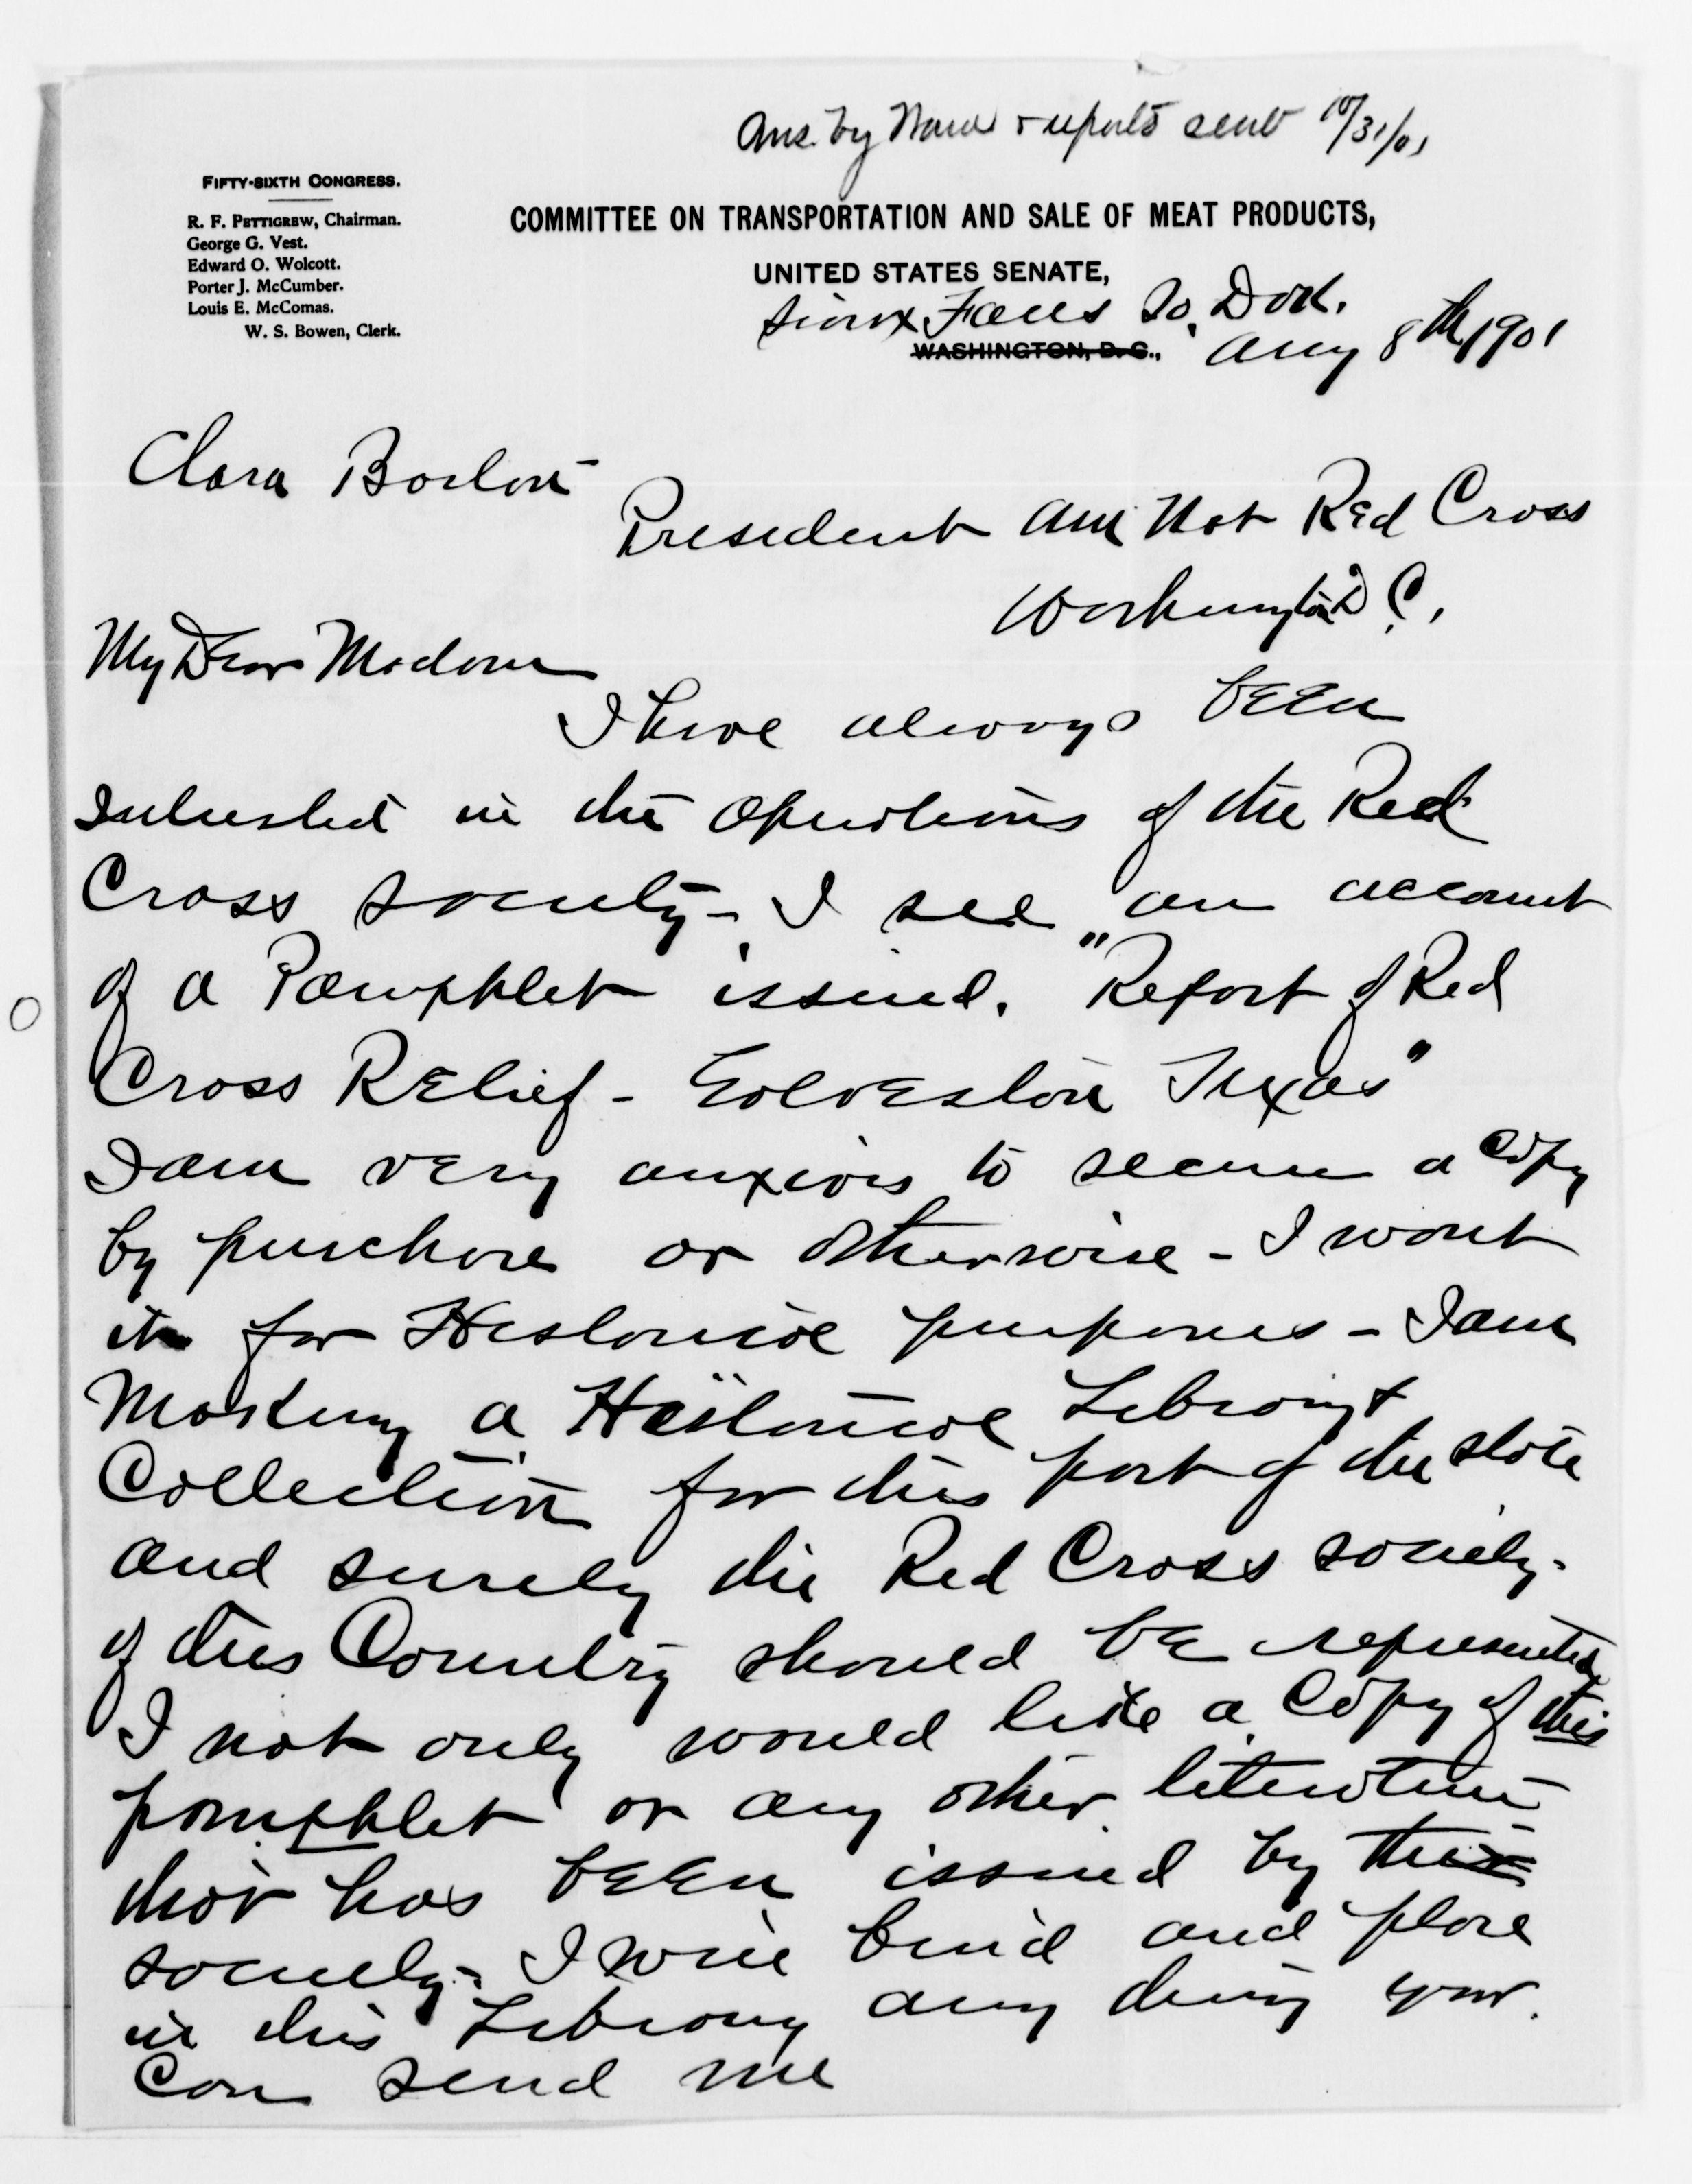 Ans. by Name & reports sent 10/31/01
FIFTY-SIXTH CONGRESS.
R. F. PETTIGREW, Chairman.
George G. Vest.
Edward O. Wolcott.
Porter J. McCumber.
Louis E. McComas.
W. S. Bowen, Clerk.
COMMITTEE ON TRANSPORTATION AND SALE OF MEAT PRODUCTS,
UNITED STATES SENATE,
Sioux Falls So. Dak.
WASHINGTON, D. C., Aug 8th 1901
Clara Barton
President Am Nat Red Cross
Washington D C.
My Dear Madam
I have always been
interested in the operations of the Red
Cross society - I see an account
of a Pamphlet issued. "Report of Red
Cross Relief - Galveston Texas"
I am very anxious to secure a copy
by purchase or otherwise - I want
it for Historical purposes - I am
Making a Historical Library &
Collection for this part of the state
and surely the Red Cross society -
of this Country should be represented
I not only would like a Copy of this
pamphlet or any other literature
that has been issued by the
society - I will bind and place
in this Library any thing you
Can send me